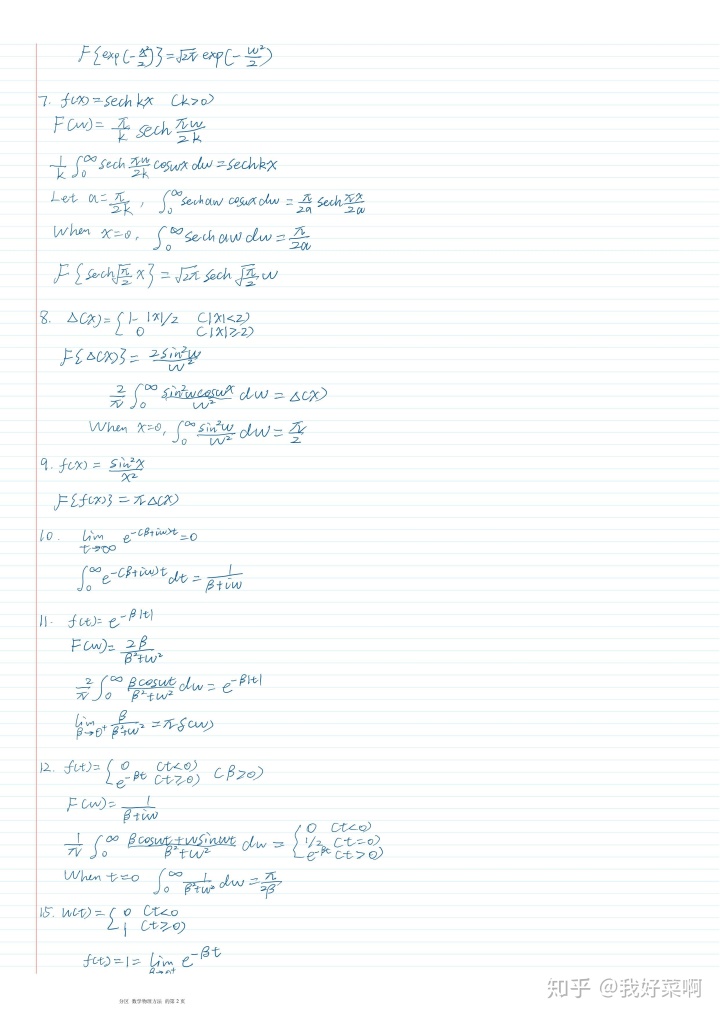 F{exp(-x²/2)}=√2π exp(-w²/2)
7. f(x)=sech kx (k>0)
F(w)= π/k sech πw/2k
1/k ∫₀^∞ sech πw/2k coswx dw=sechkx
Let a=π/2k, ∫₀^∞ sechaw coswx dw=π/2a sech πx/2a
When x=0, ∫₀^∞ sech aw dw=π/2a
F{sech√π/2 x}=√2π sech √π/2 w
8. Δ(x)={1-|x|/2 (|x|<2)
0 (|x|≥2)
F{Δ(x)}= 2sin²w/w²
2/π ∫₀^∞ sin²wcoswx/w² dw=Δ(x)
When x=0, ∫₀^∞ sin²w/w² dw=π/2
9. f(x)= sin²x/x²
F{f(x)}=πΔ(x)
10. lim t→∞ e^-(β+iw)t=0
∫₀^∞ e^-(β+iw)t dt=1/β+iw
11. f(t)=e^-β|t|
F(w)=2β/β²+w²
2/π ∫₀^∞ βcoswt/β²+w² dw=e^-β|t|
lim β→0⁺ β/β²+w²=πδ(w)
12. f(t)={0 (t<0)
e^-βt (t≥0) (β>0)
F(w)=1/β+iw
1/π ∫₀^∞ βcoswt+wsinwt/β²+w² dw={0 (t<0)
1/2 (t=0)
e^-βt (t>0)
When t=0 ∫₀^∞ 1/β²+w² dw=π/2β
15. u(t)={0 (t<0
1 (t≥0)
f(t)=1=lim β→0⁺ e^-βt
分区 数学物理方法 的第 2 页
知乎 @我好菜啊